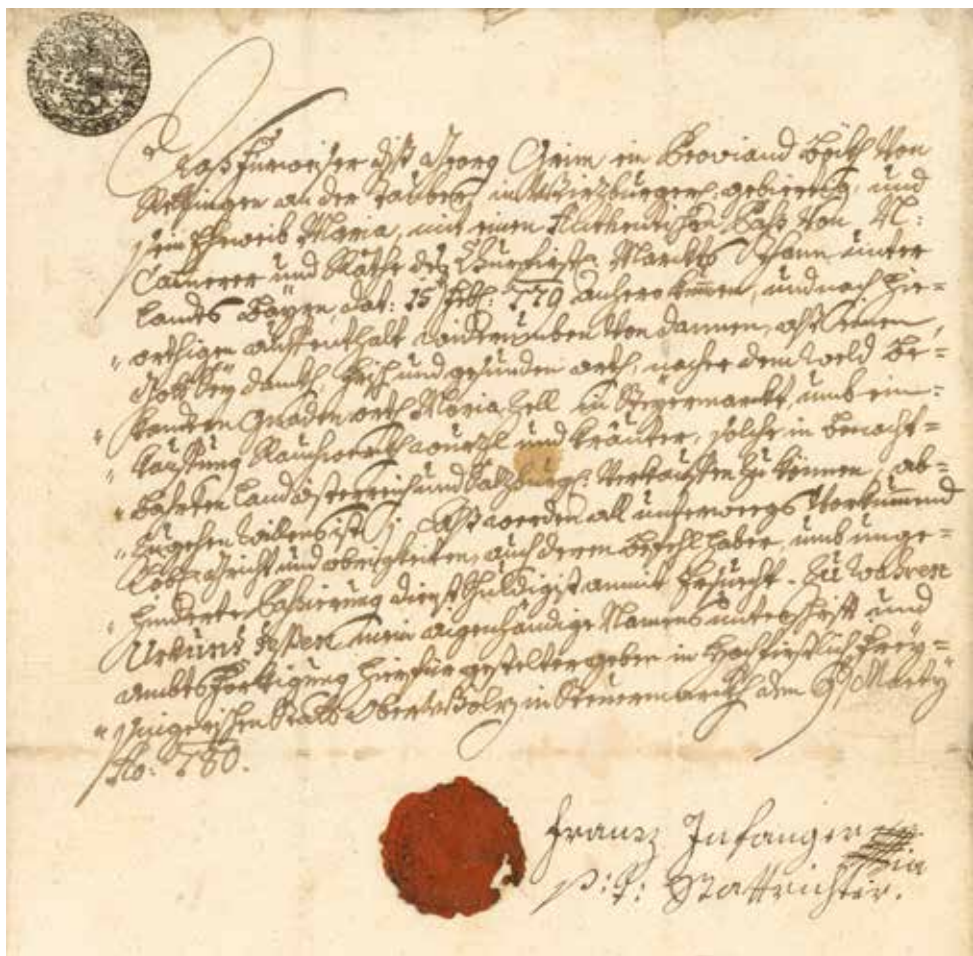 Daß Fürweiser diß Georg Grim ein Proviand Böckh von
Röttingen an der Tauber in Wirzburger: gebiertig, und
sein Eheweib Maria, mit einen Authentischen Paß von N:
Camerer und Räthe deß Churfirstl: Markts Thann, unter
Landts Bayrn, dat: 15 Feb: 779 anhero kommen, und nach hie=
orthigen Auffenthalt widerumben von dannen, alß einen,
Gott Sey danckh, frisch und gesunden orth, nacher dem Welt be=
kandten Gnaden orth Maria Zell in Steyermarkt, umb ein=
kauffung Rauchwerth wurzl und kräuter, solche in benacht=
bahrten Land österreich und Salzburg: Verkauffen zu können, ab=
zugehen willens ist; Alß werden all unterwegs Vorkummend
Löbl: Gricht und obrigkeiten, auch deren Befehl haber, umb unge=
hinderte Passierung dienstschuldigist anmit Ersucht. Zu wahren
Urkund dessen mein aigenhändige Namens unterschrifft und
Ambts fertigung hierfür gestelter geben in Hochfirstlich Frey=
singerischen Statt Oberwölz in Steuermarckh den 9t Marty
Ao: 780.
Franz Infanger
p: t: Stattrichter.